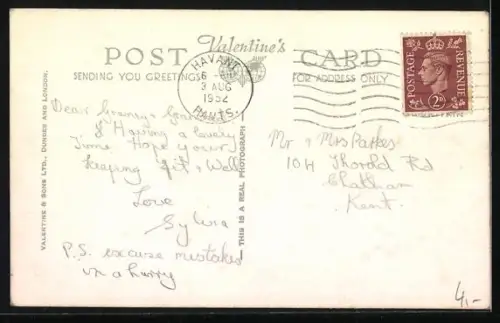 POST Valentine's CARD
SENDING YOU GREETINGS FOR ADDRESS ONLY
HAVANT
3 AUG
1952
HANTS
POSTAGE REVENUE
2D
Dear Granny & Grandad
Having a lovely
Time Hope your
keaping fit & Well
Love
Sylvia
P.S. excuse mistakes
in a hurry
Mr & Mrs Parkes
104 Thorold Rd
Chatham
Kent.
VALENTINE & SONS LTD., DUNDEE AND LONDON.
THIS IS A REAL PHOTOGRAPH
4,-